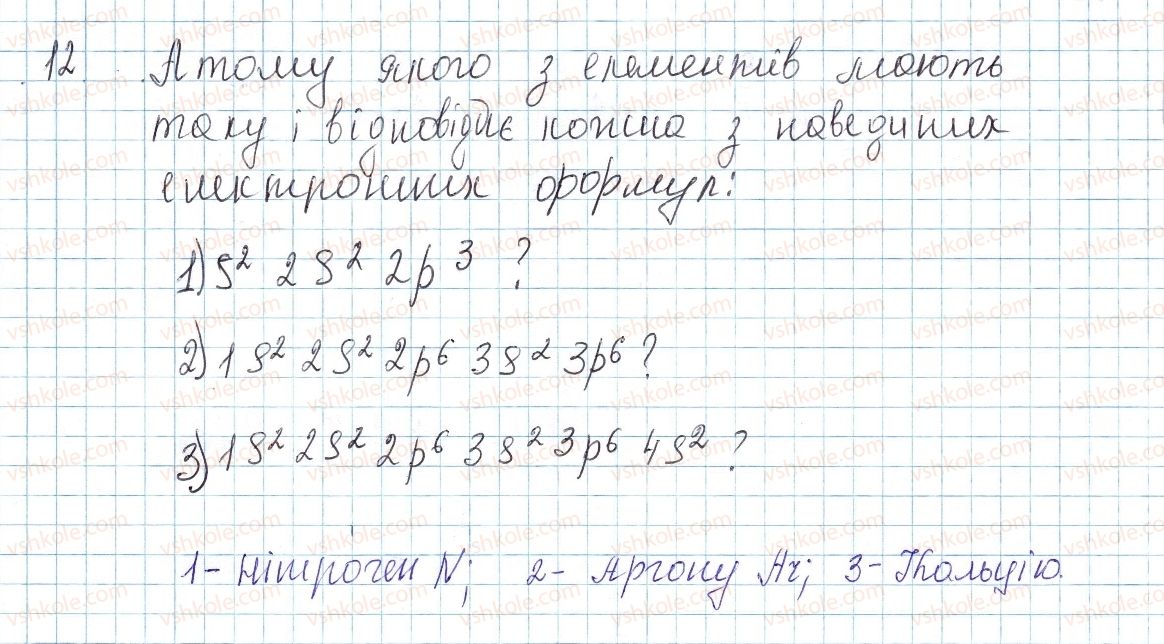 12. Атому якого з елементів мають
таку і відповідає кожна з наведених
електронних формул:
1) S² 2S² 2p³ ?
2) 1S² 2S² 2p⁶ 3S² 3p⁶ ?
3) 1S² 2S² 2p⁶ 3S² 3p⁶ 4S² ?
1 - Нітроген N; 2 - Аргону Ar; 3 - Кальцію.